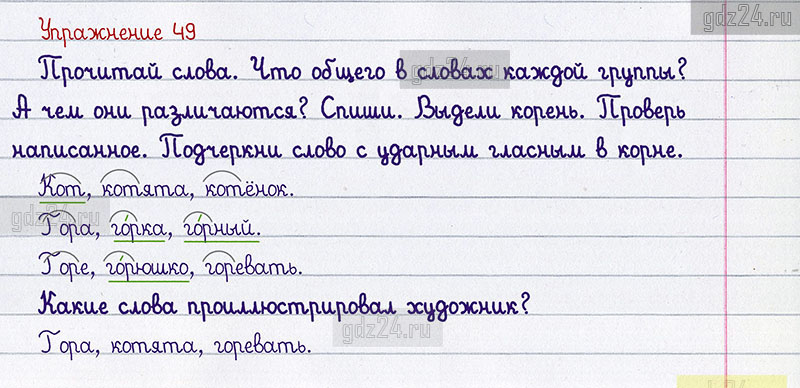 gdz24.ru
Упражнение 49
Прочитай слова. Что общего в словах каждой группы?
gdz24.ru
А чем они различаются? Спиши. Выдели корень. Проверь
написанное. Подчеркни слово с ударным гласным в корне.
Кот, котята, котёнок.
gdz24.ru
Гора, го́рка, го́рный.
Горе, го́рюшко, горевать.
Какие слова проиллюстрировал художник?
gdz24.ru
Гора, котята, горевать.